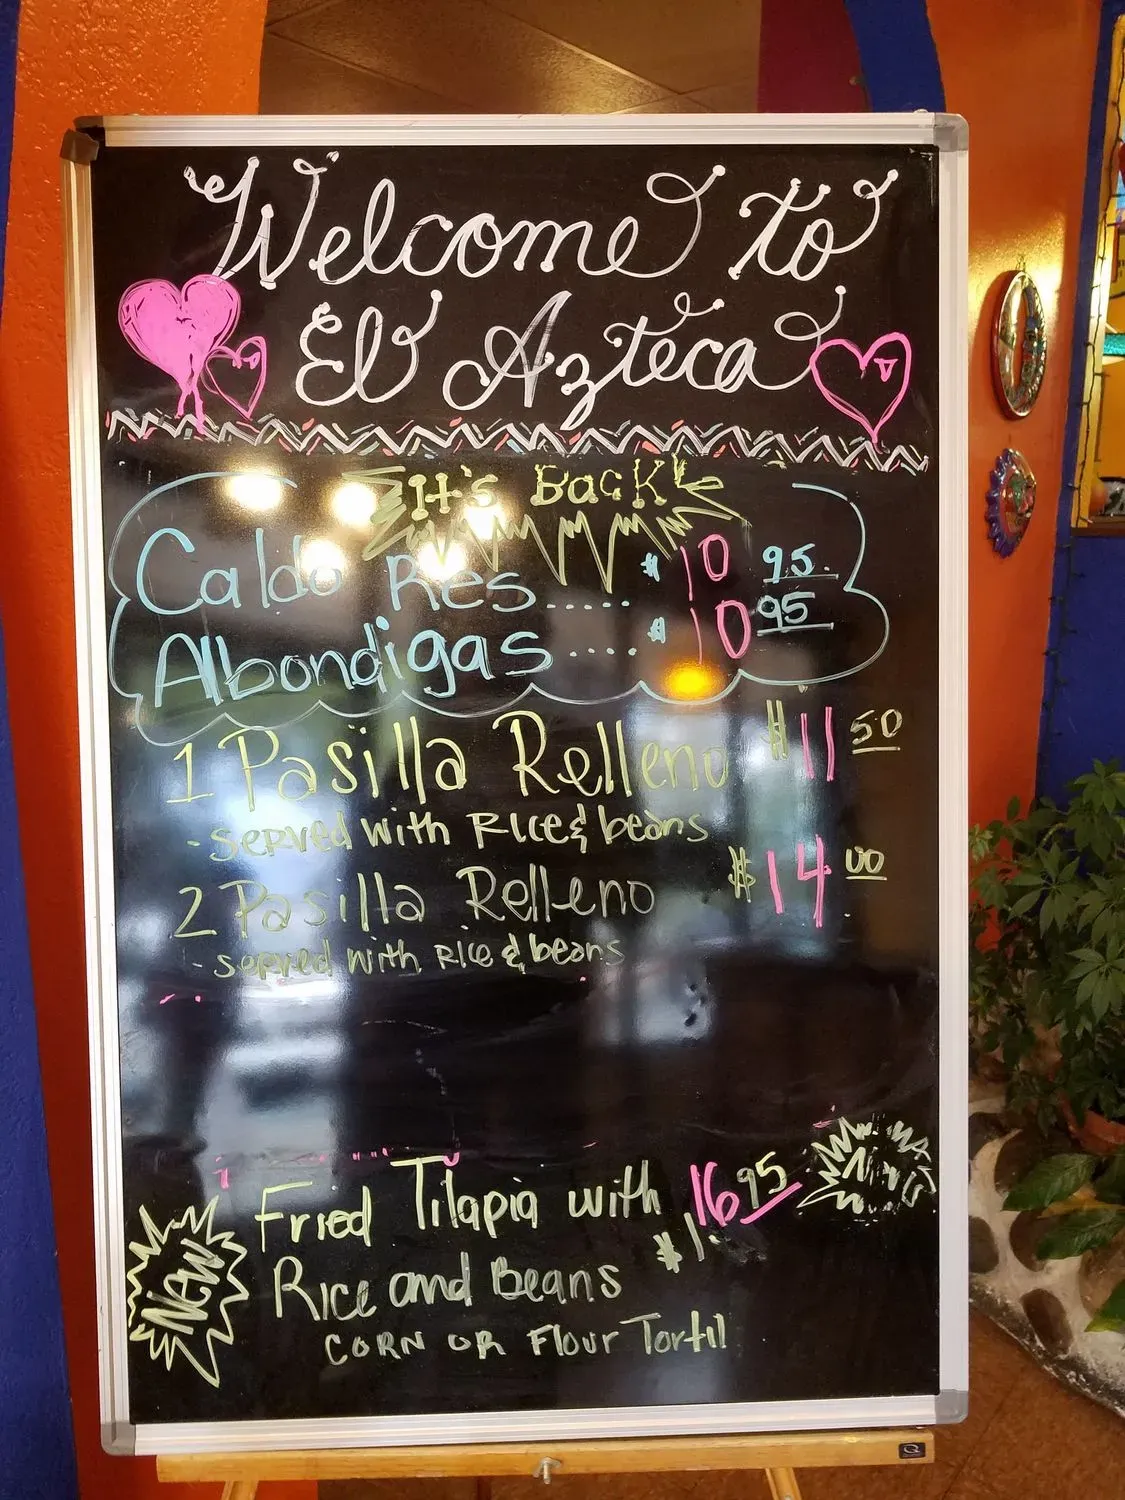 Welcome to
El Azteca
It's Back!
Caldo Res..... $10 95
Albondigas..... $10 95
1 Pasilla Relleno $11 50
- served with Rice & beans
2 Pasilla Relleno $14 00
- served with Rice & beans
New
Fried Tilapia with 16 95
Rice and Beans
CORN OR Flour Tortil